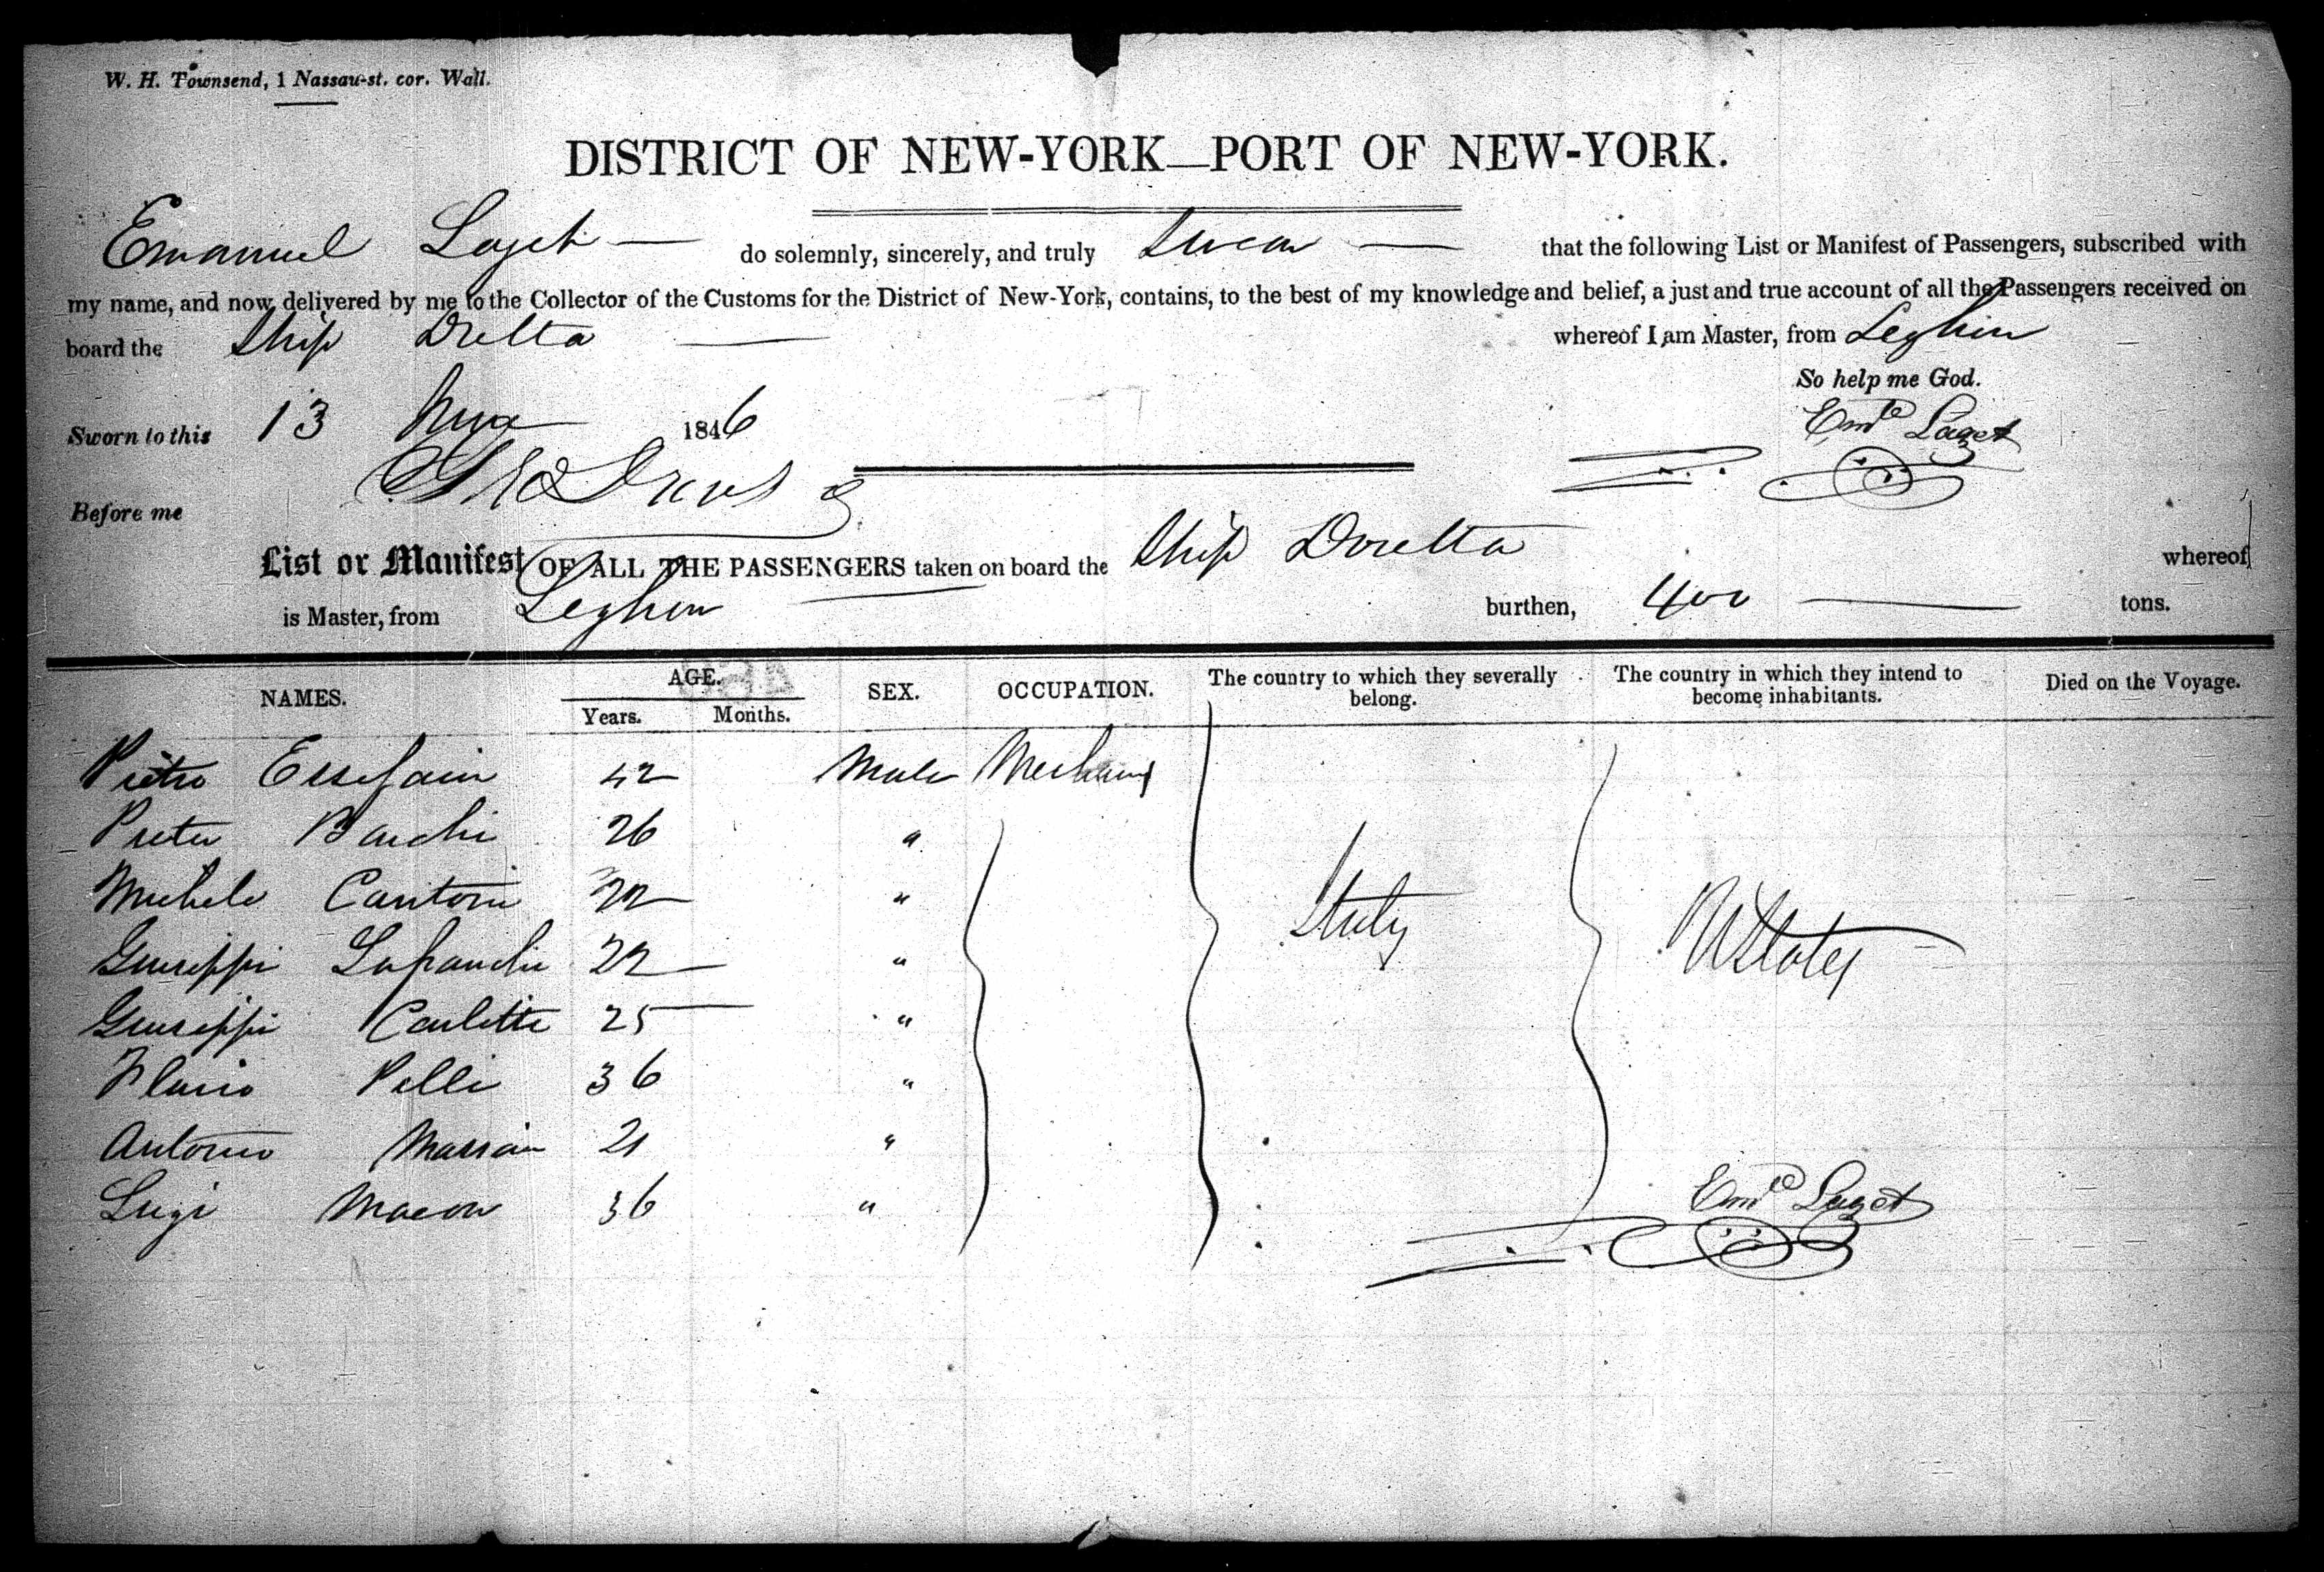 W. H. Townsend, 1 Nassau-st. cor. Wall.
DISTRICT OF NEW-YORK—PORT OF NEW-YORK.
Emanuel Laget do solemnly, sincerely, and truly Swear that the following List or Manifest of Passengers, subscribed with
my name, and now delivered by me to the Collector of the Customs for the District of New-York, contains, to the best of my knowledge and belief, a just and true account of all the Passengers received on
board the Ship whereof I am Master, from Leghorn
So help me God.
Sworn to this 13 1846
Eml^e Laget
Before me
List or Manifest OF ALL THE PASSENGERS taken on board the Ship Doretta whereof
is Master, from Leghorn burthen, 400 tons.
NAMES. AGE. SEX. OCCUPATION. The country to which they severally belong. The country in which they intend to become inhabitants. Died on the Voyage.
Years. Months.
Pietro 42 Male
26 "
Michele Cantoni 22 "
Giuseppi 22 "
Giuseppi Carletti 25 "
Pelli 36 "
Antonio 21 "
Luigi 36 "
Italy
U States
Eml^e Laget